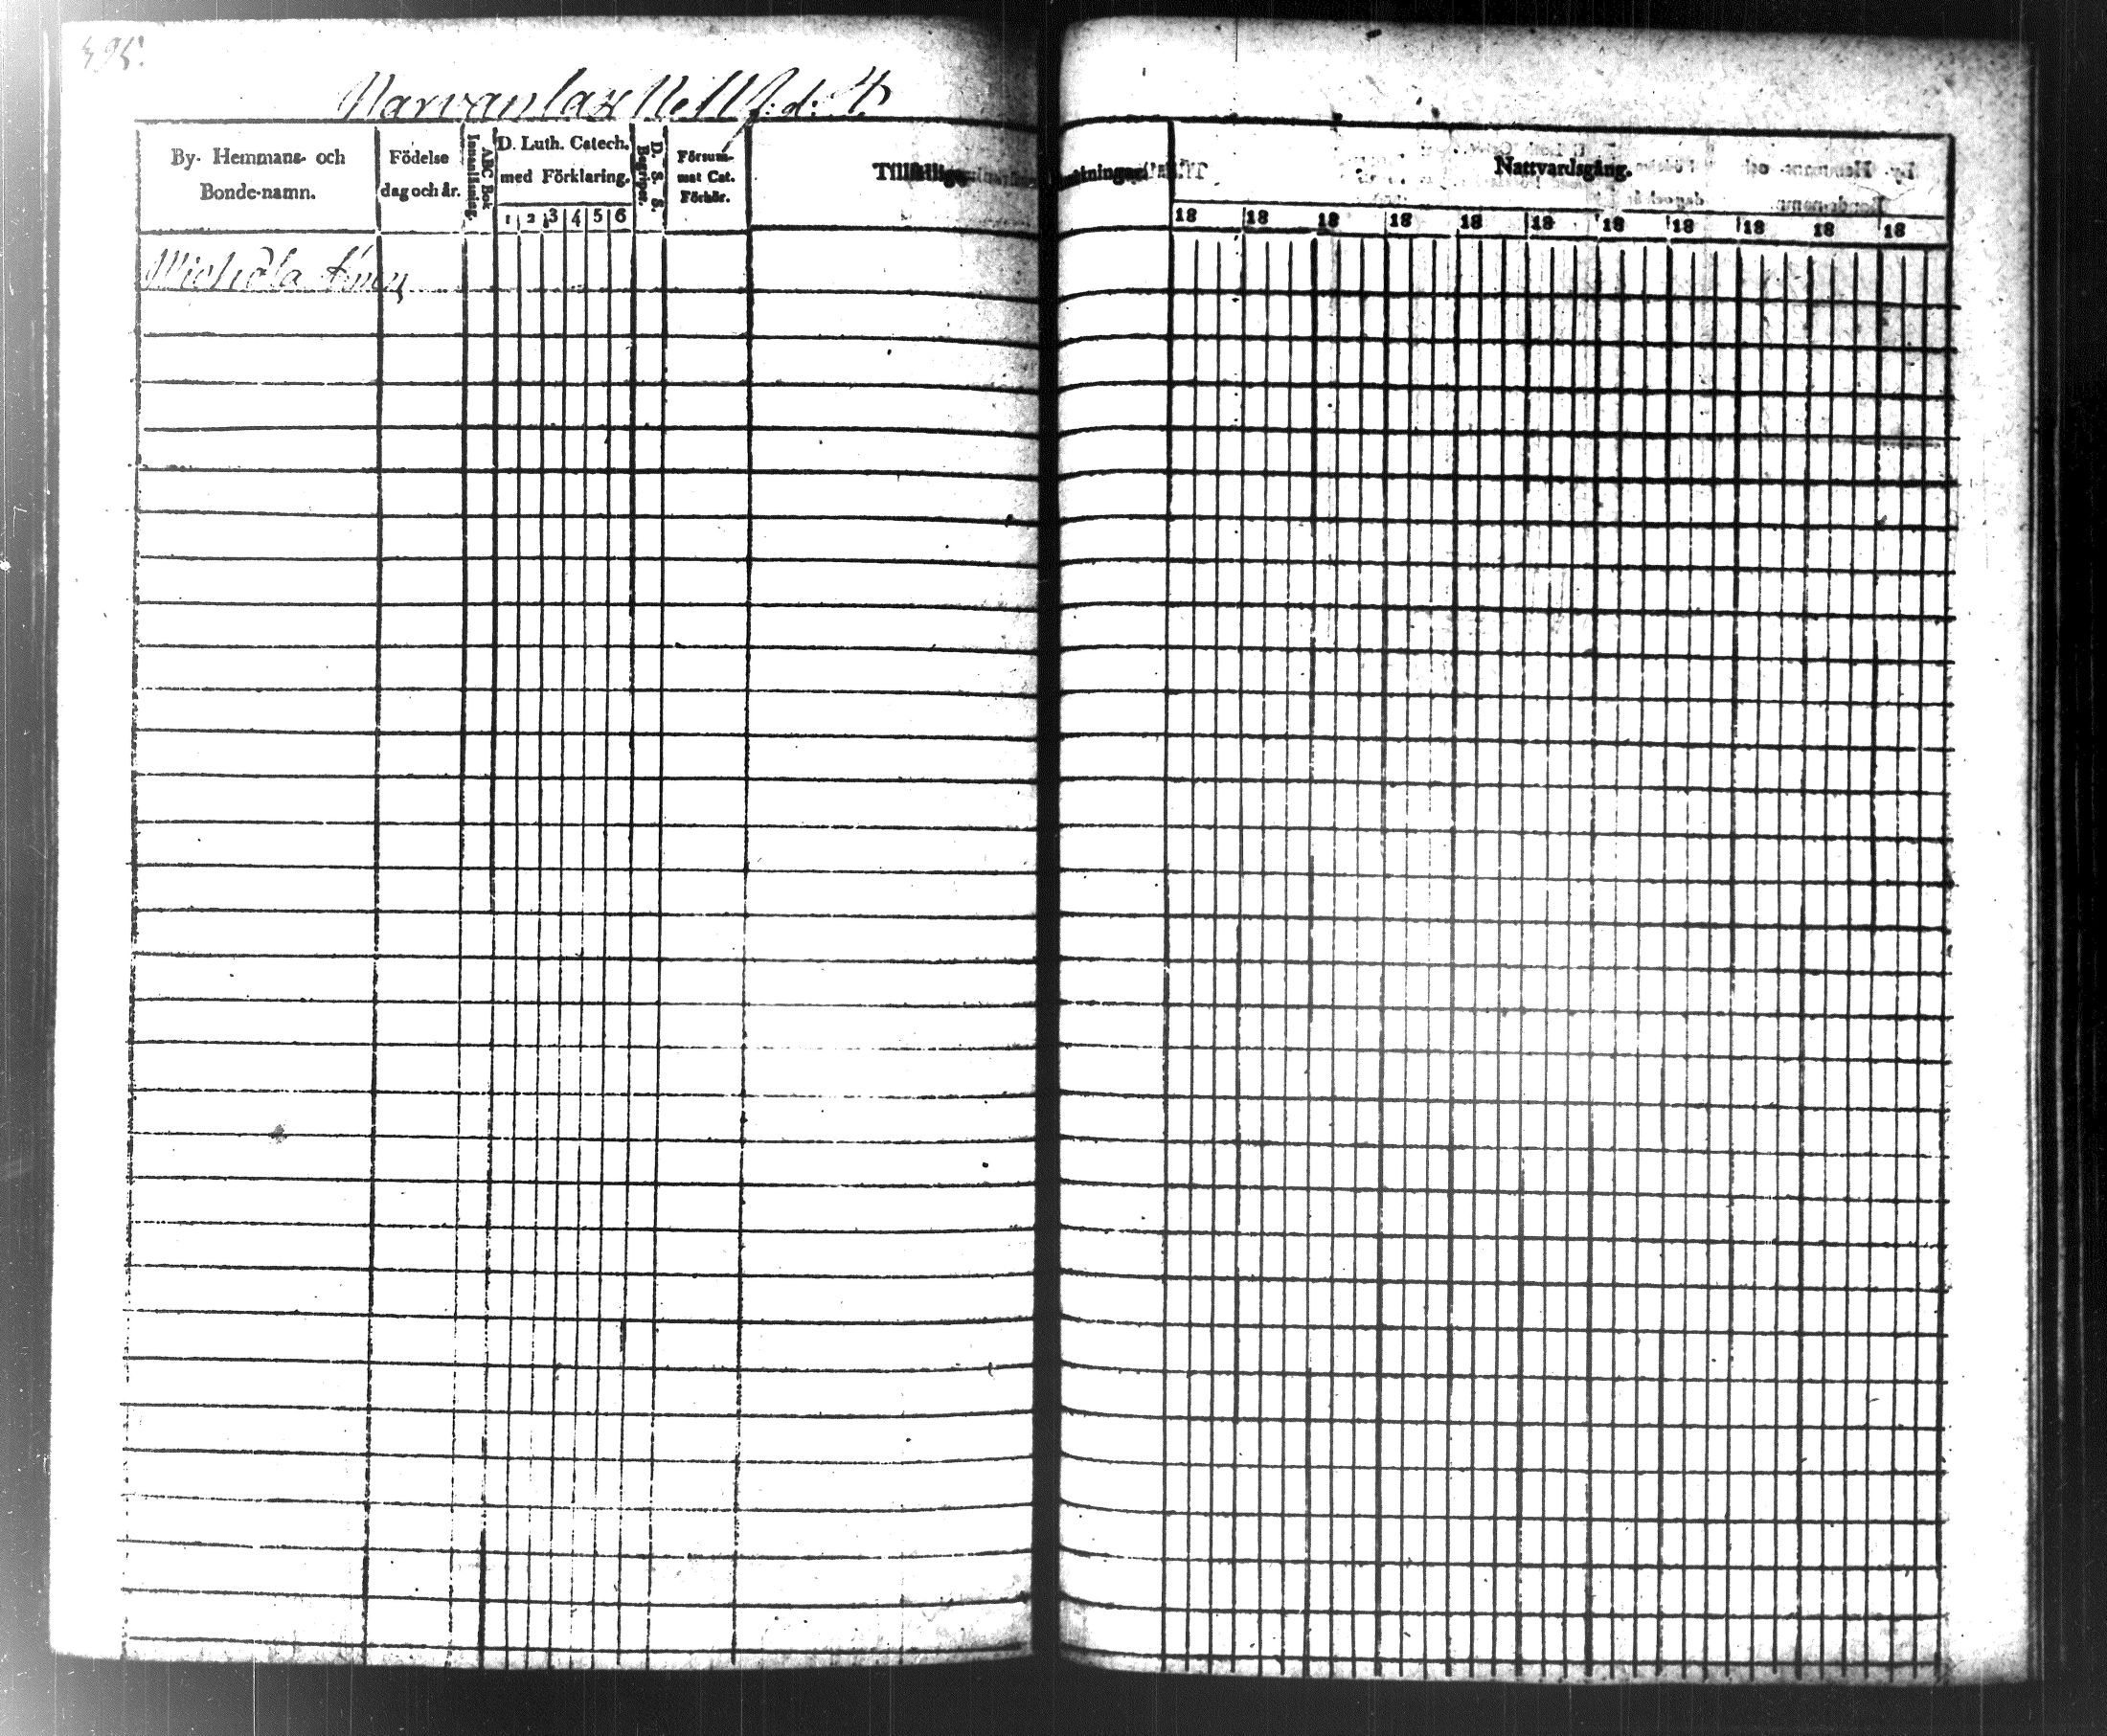 395.
Narvanlax No 11 f: d: 4.
By- Hemmans- och Bonde-namn.
Födelse dag och år.
ABC Bok Innanläsning.
D. Luth. Catech. med Förklaring.
1 2 3 4 5 6
D. S. S. Begriper.
Försummat Cat. Förhör.
Tillfällige
Nattvardsgång.
18 18 18 18 18 18 18 18 18 18 18